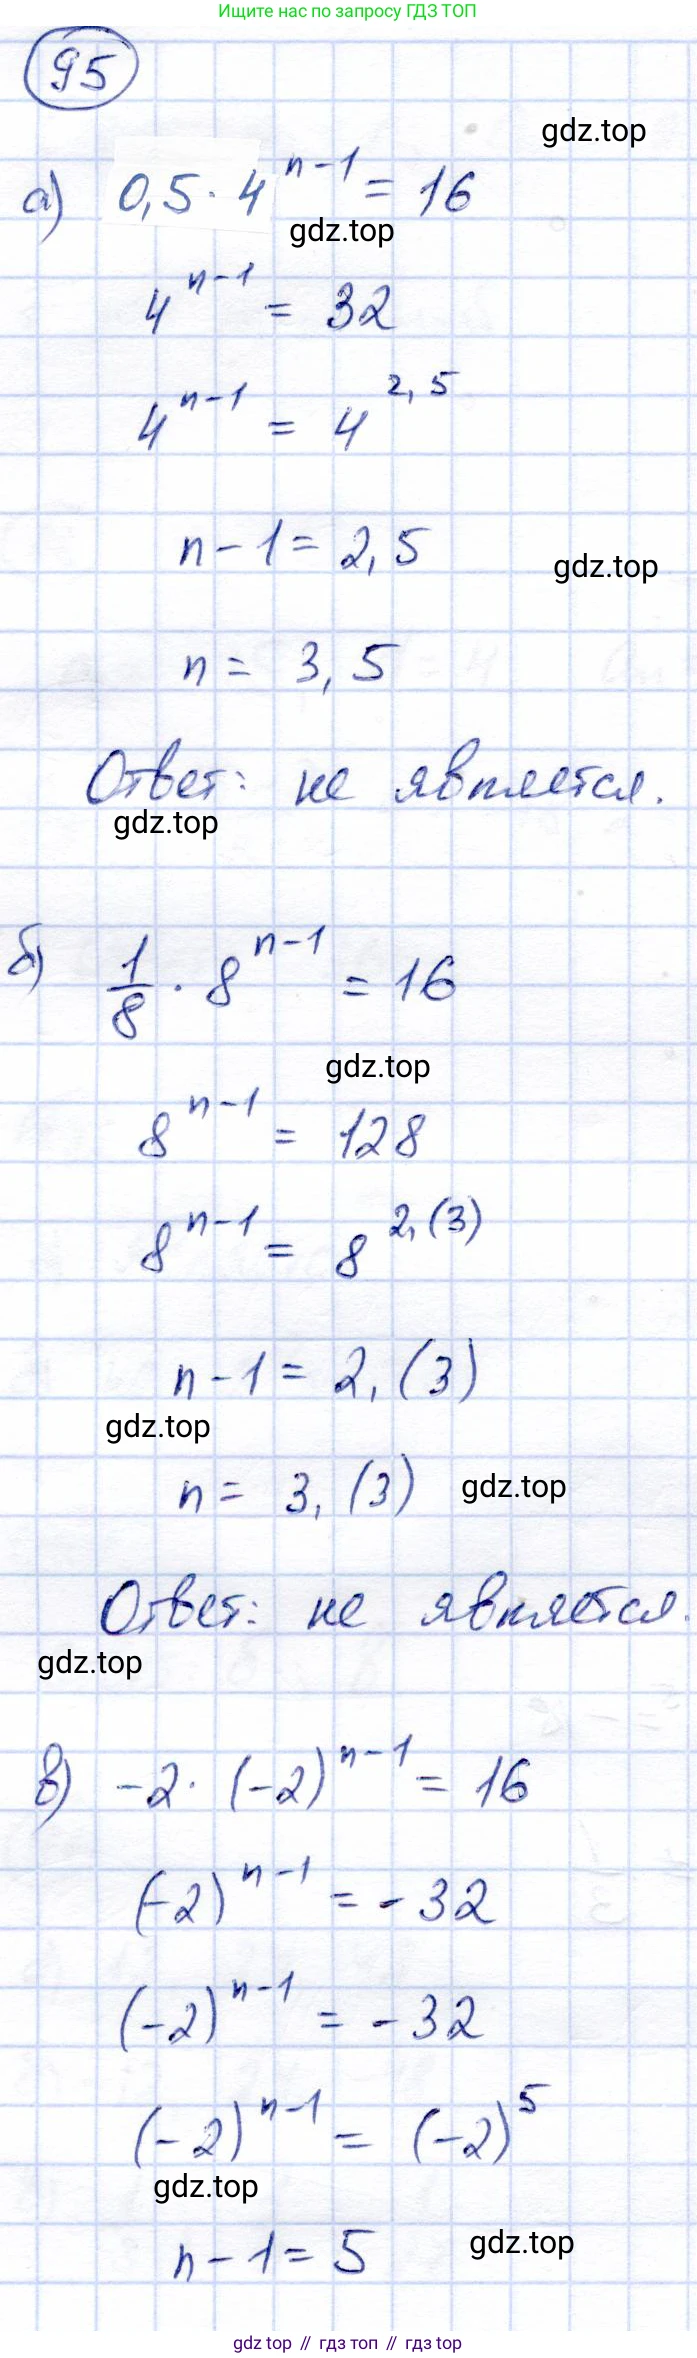 Ищите нас по запросу ГДЗ ТОП
95
gdz.top
а) 0,5 · 4^{n-1} = 16
gdz.top
4^{n-1} = 32
4^{n-1} = 4^{2,5}
n - 1 = 2,5
gdz.top
n = 3,5
Ответ: не является.
gdz.top
б) 1/8 · 8^{n-1} = 16
gdz.top
8^{n-1} = 128
8^{n-1} = 8^{2,(3)}
n - 1 = 2,(3)
gdz.top
n = 3,(3)
gdz.top
Ответ: не является.
gdz.top
в) -2 · (-2)^{n-1} = 16
(-2)^{n-1} = -32
(-2)^{n-1} = -32
(-2)^{n-1} = (-2)^5
gdz.top
n - 1 = 5
gdz.top
gdz top // гдз топ // gdz top